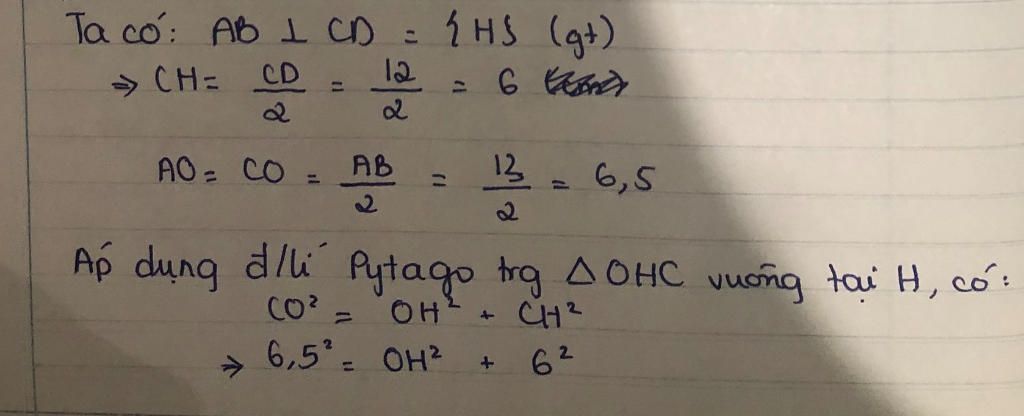 Ta có: AB ⊥ CD = {H} (gt)
⇒ CH = CD/2 = 12/2 = 6
AO = CO = AB/2 = 13/2 = 6,5
Áp dụng đ/lí Pytago trg △OHC vuông tại H, có:
CO² = OH² + CH²
⇒ 6,5² = OH² + 6²